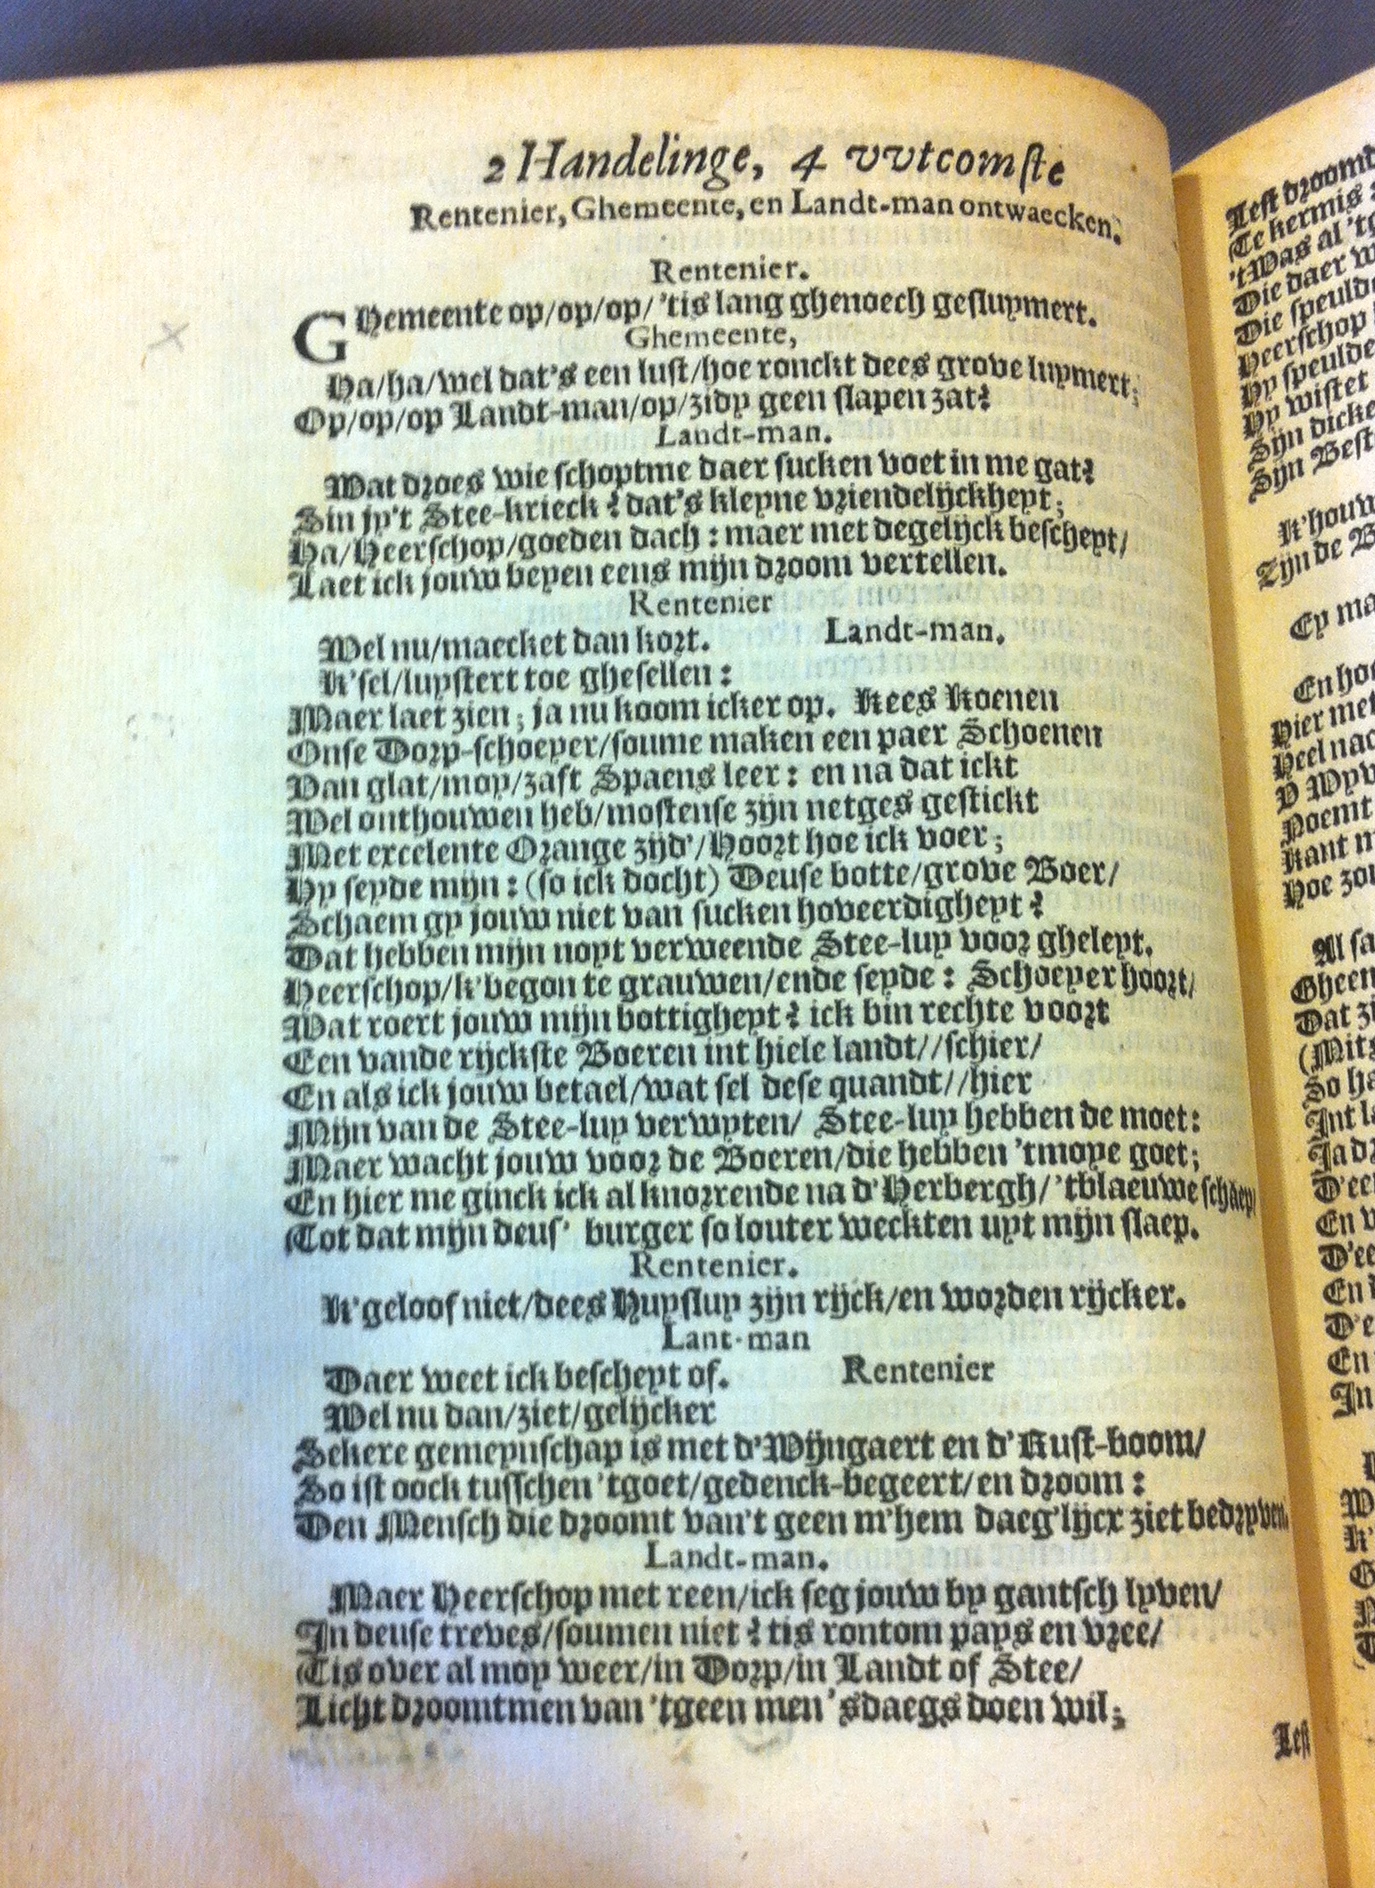 2 Handelinge, 4 vvtcomste
Rentenier, Ghemeente, en Landt-man ontwaecken.
Rentenier.
GHemeente op/op/op/'tis lang ghenoech gesluymert.
Ghemeente,
Ha/ha/wel dat's een lust/hoe ronckt dees grove luymert;
Op/op/op Landt-man/op/zidy geen slapen zat?
Landt-man.
Wat droes wie schoptme daer sucken voet in me gat?
Sin jy't Stee-krieck? dat's kleyne vriendelijckheyt;
Ha/Heerschop/goeden dach: maer met degelijck bescheyt/
Laet ick jouw beyen eens mijn droom vertellen.
Rentenier
Wel nu/maecket dan kort. Landt-man.
K'sel/luystert toe ghesellen:
Maer laet zien; ja nu koom icker op. Kees Koenen
Onse Dorp-schoeyer/soume maken een paer Schoenen
Van glat/moy/zaft Spaens leer: en na dat ickt
Wel onthouwen heb/mostense zijn netges gestickt
Met excelente Orange zijd'/Hoort hoe ick voer;
Hy seyde mijn: (so ick docht) Deuse botte/grove Boer/
Schaem gy jouw niet van sucken hoveerdigheyt?
Dat hebben mijn noyt verweende Stee-luy voor gheleyt.
Heerschop/k'begon te grauwen/ende seyde: Schoeyer hoort/
Wat roert jouw mijn bottigheyt? ick bin rechte voort
Een vande rijckste Boeren int hiele landt//schier/
En als ick jouw betael/wat sel dese quandt//hier
Mijn van de Stee-luy verwyten/ Stee-luy hebben de moet:
Maer wacht jouw voor de Boeren/die hebben 'tmoye goet;
En hier me ginck ick al knorrende na d'Herbergh/'tblaeuwe schaep/
Tot dat mijn deus' burger so louter weckten uyt mijn slaep.
Rentenier.
K'geloof niet/dees Huysluy zijn rijck/en worden rijcker.
Lant-man
Daer weet ick bescheyt of. Rentenier
Wel nu dan/ziet/gelijcker
Sekere gemeynschap is met d'Wijngaert en d'Rust-boom/
So ist oock tusschen 'tgoet/gedenck-begeert/en droom:
Den Mensch die droomt van't geen m'hem daeg'lijcx ziet bedryven.
Landt-man.
Maer Heerschop met reen/ick seg jouw by gantsch lyven/
In deuse treves/soumen niet? tis rontom pays en vree/
Tis over al moy weer/in Dorp/in Landt of Stee/
Licht droomtmen van 'tgeen men 'sdaegs doen wil;
Lest